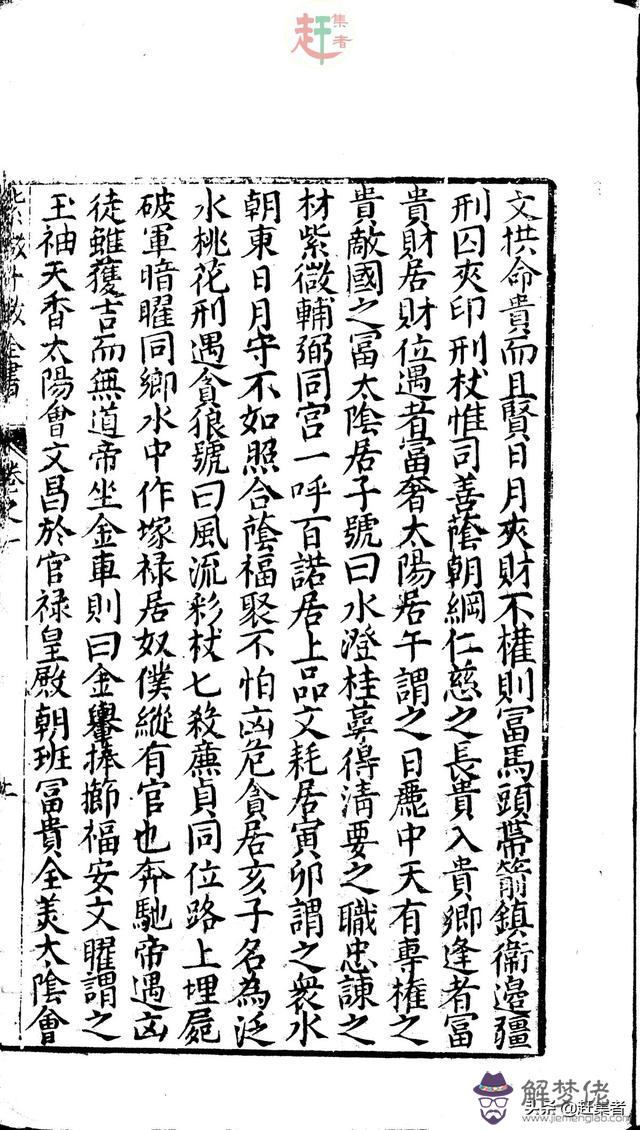 趕集者
文拱命貴而且賢日月夾財不權則冨馬頭帶箭鎮衞邉疆
刑囚夾印刑杖惟司善蔭朝綱仁慈之長貴入貴鄉逢者冨
貴財居財位遇者富奢太陽居午謂之日麗中天有專權之
貴敵國之冨太陰居子號曰水澄桂萼得清要之職忠諫之
材紫微輔弼同宫一呼百諾居上品文耗居寅卯謂之衆水
朝東日月守不如照合蔭福聚不怕凶危貪居亥子名為泛
水桃花刑遇貪狼號曰風流彩杖七殺亷貞同位路上埋屍
破軍暗曜同鄉水中作塚禄居奴僕縱有官也奔馳帝遇凶
徒雖獲吉而無道帝坐金車則曰金轝捧櫛福安文曜謂之
玉袖天香太陽會文昌於官禄皇殿朝班冨貴全美太陰會
紫微斗数全書 卷之一
解梦佬
www.jiemenglab.com
头条@赶集者